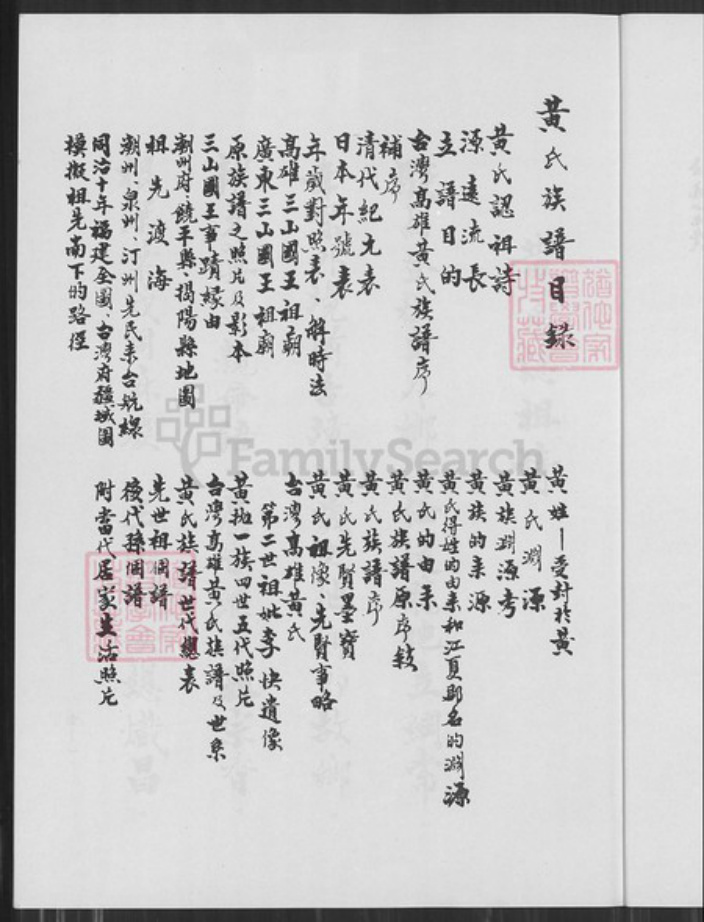 黃氏族譜目錄
黃氏認祖詩
源遠流長
立譜目的
台灣高雄黃氏族譜序
補序
清代紀元表
日本年號表
年歲對照表、解時法
高雄三山國王祖廟
廣東三山國王祖廟
原族譜之照片及影本
三山國王事蹟緣由
潮州府、饒平縣、揭陽縣地圖
祖先渡海
潮州、泉州、汀州先民來台航線
同治十年福建全圖、台灣府疆域圖
模擬祖先南下的路徑
黃姓—受封於黃
黃氏淵源
黃族淵源考
黃族的來源
黃氏得姓的由來和江夏郡名的淵源
黃氏的由來
黃氏族譜原序敍
黃氏族譜序
黃氏先賢墨寶
黃氏祖像、先賢事略
台灣高雄黃氏
第二世祖妣李快遺像
黃抛一族四世五代照片
台灣高雄黃氏族譜及世系
黃氏族譜世代總表
先世祖圖譜
後代孫圖譜
附當代居家生活照片
FamilySearch